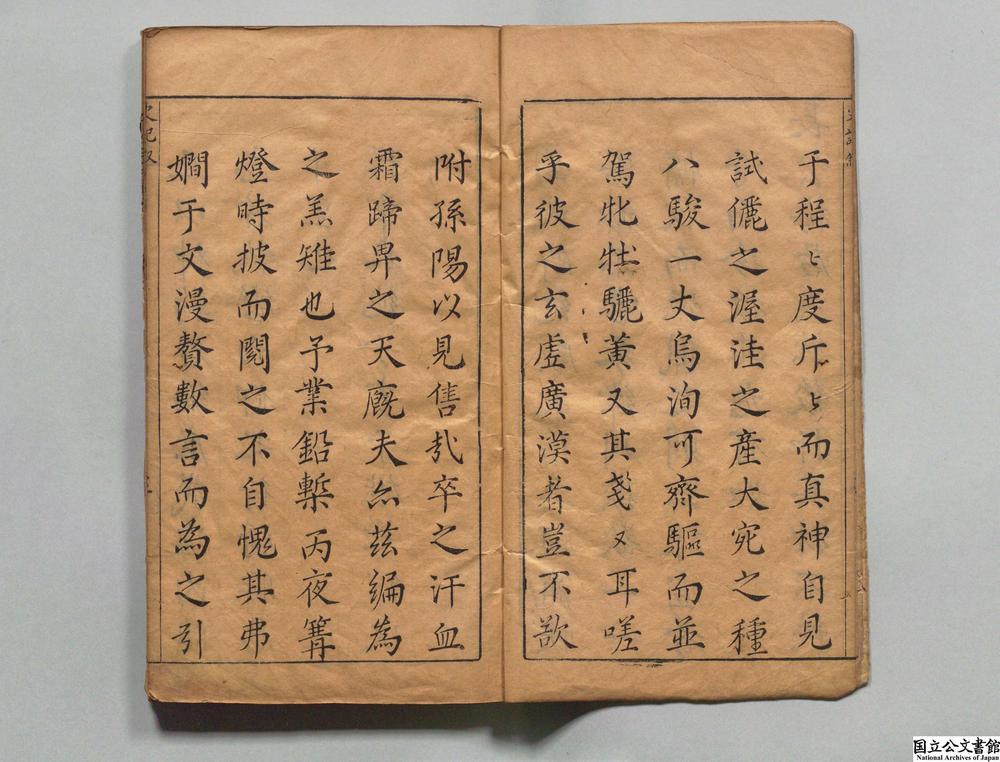 于程〻度斤〻而真神自見
試儷之渥洼之產大宛之種
八駿一丈烏洵可齊驅而並
駕牝牡驪黃又其戔〻耳嗟
乎彼之玄虛廣漠者豈不歆
附孫陽以見售㢤卒之汗血
霜蹄畀之天廄夫亦茲編為
之羔雉也予業鉛槧丙夜篝
燈時披而閱之不自愧其弗
嫺于文漫贅數言而為之引
國立公文書館
National Archives of Japan